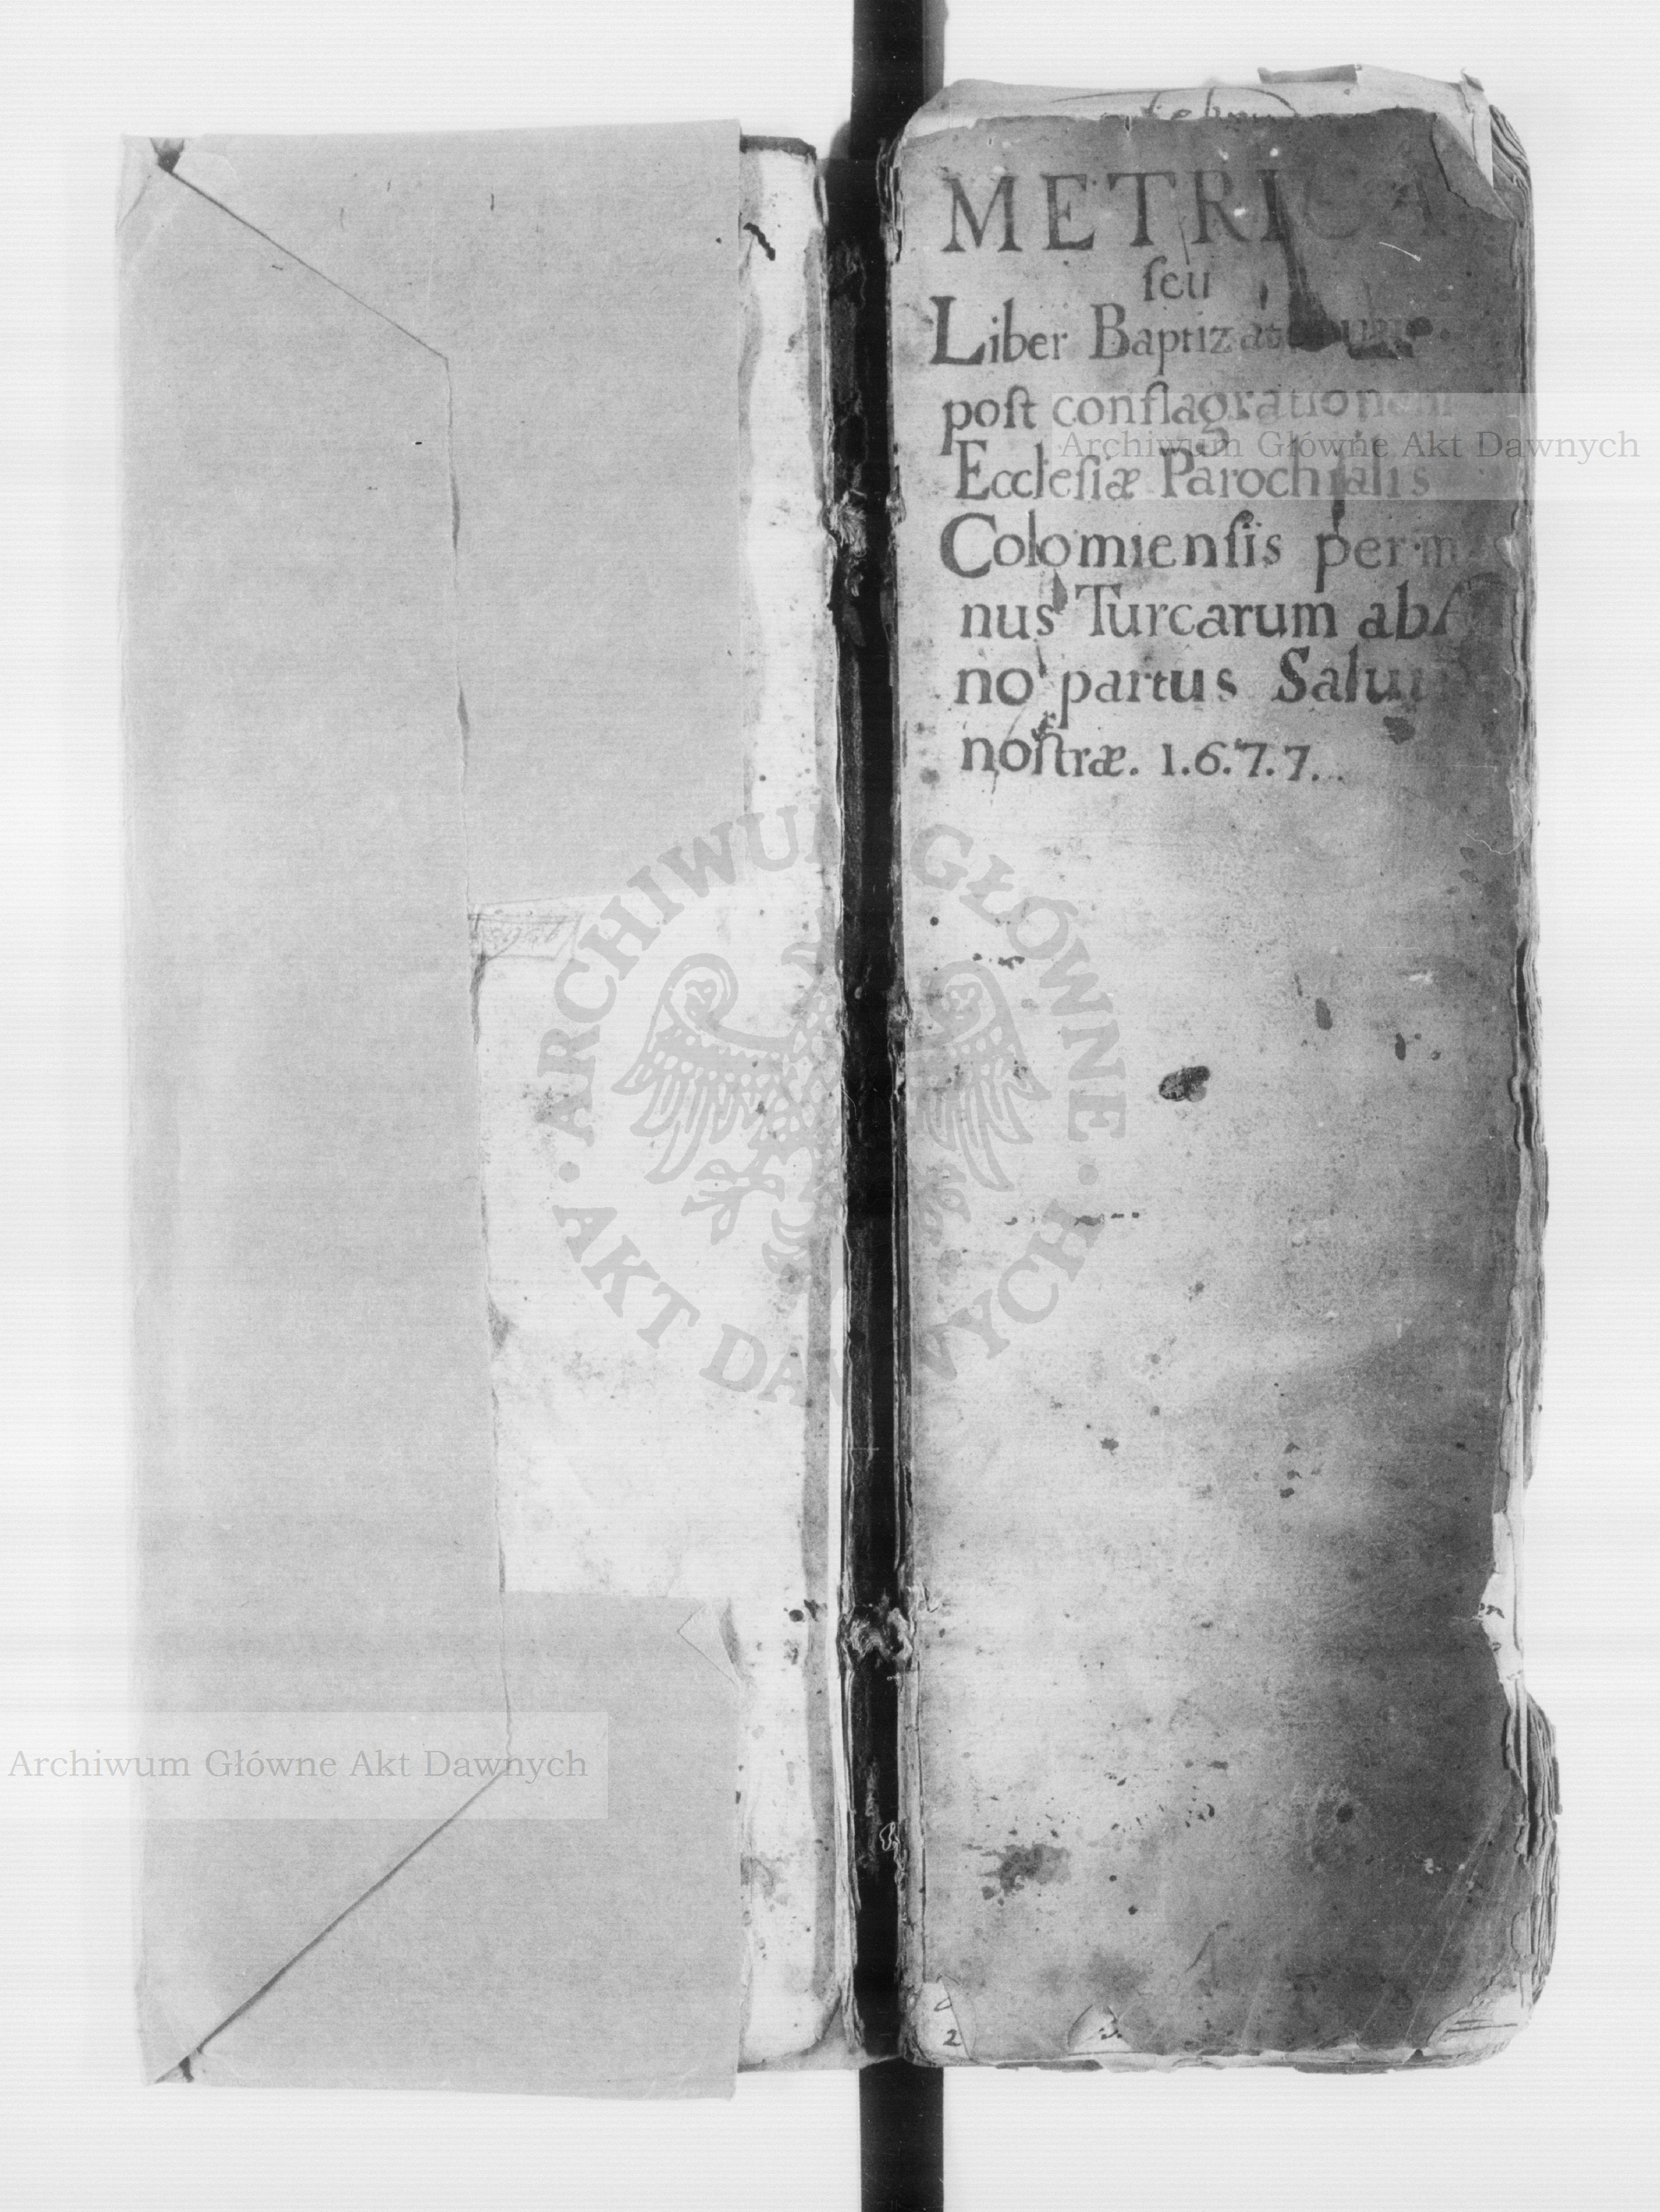 METRICA
ſeu
Liber Baptizatorum.
poſt conflagrationem
Eccleſiæ Parochialis
Colomienſis per m
nus Turcarum abſ
no partus Salu
noſtræ. 1.6.7.7.
Archiwum Główne Akt Dawnych
ARCHIWUM GŁÓWNE
AKT DAWNYCH
Archiwum Główne Akt Dawnych
2